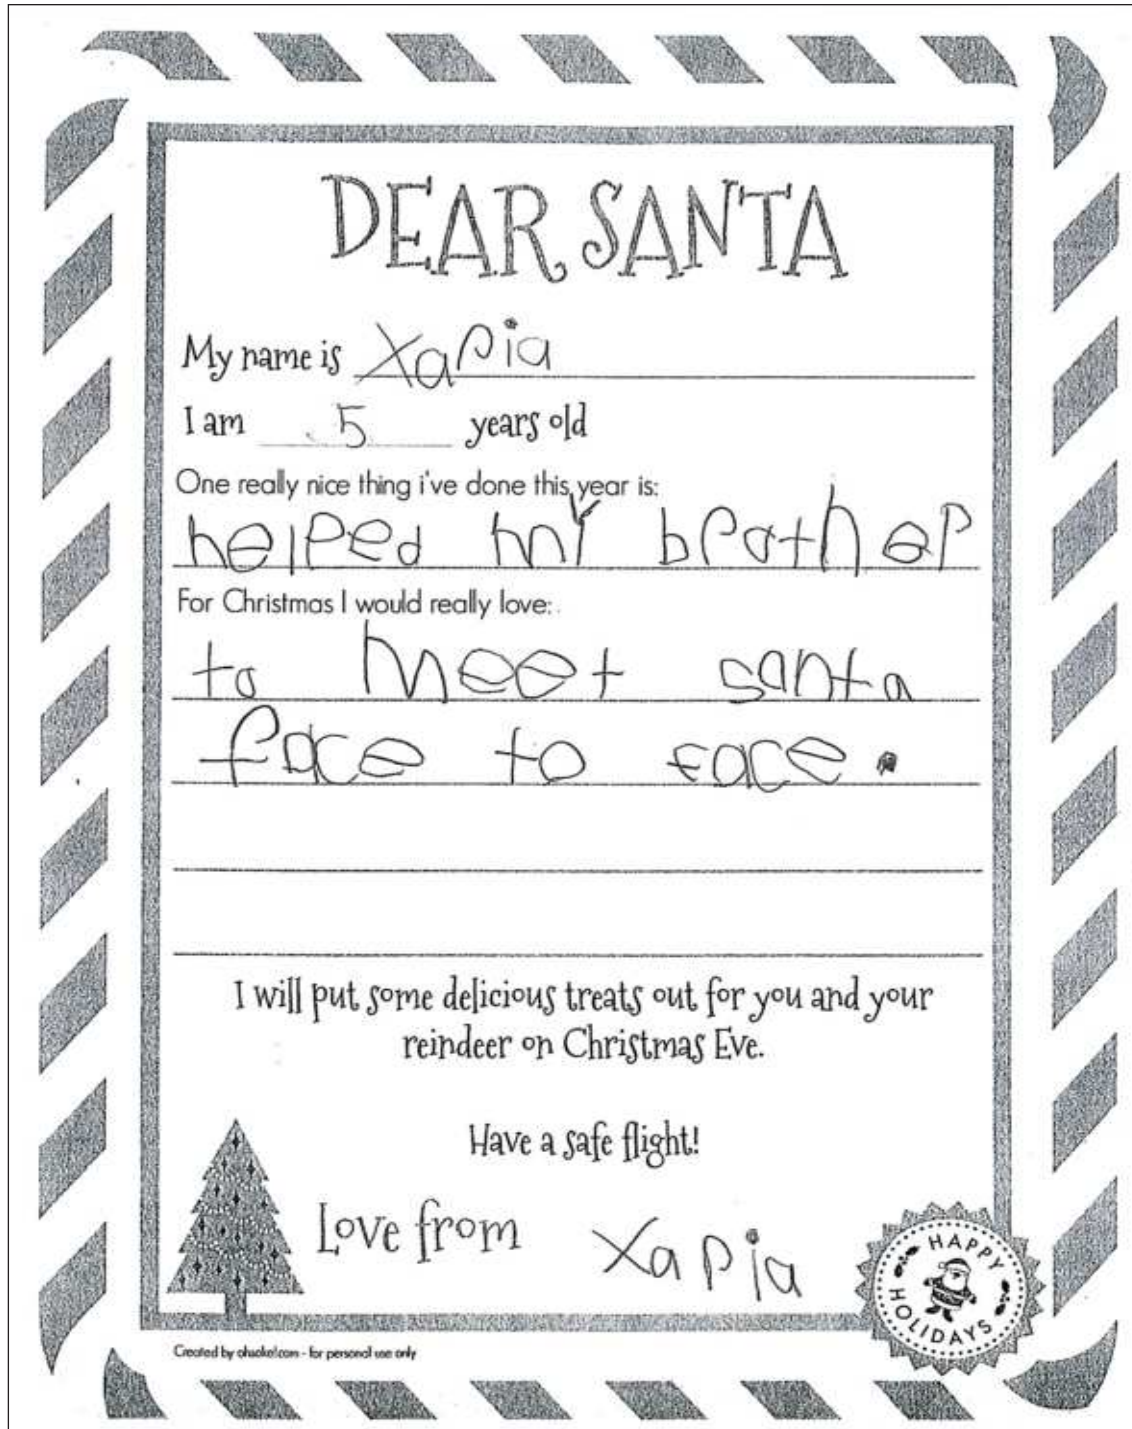 DEAR SANTA
My name is Xaria
I am 5 years old
One really nice thing i've done this year is:
helped my brother
For Christmas I would really love:
to meet santa
face to face.
I will put some delicious treats out for you and your
reindeer on Christmas Eve.
Have a safe flight!
Love from Xaria
HAPPY
HOLIDAYS
Created by - for personal use only